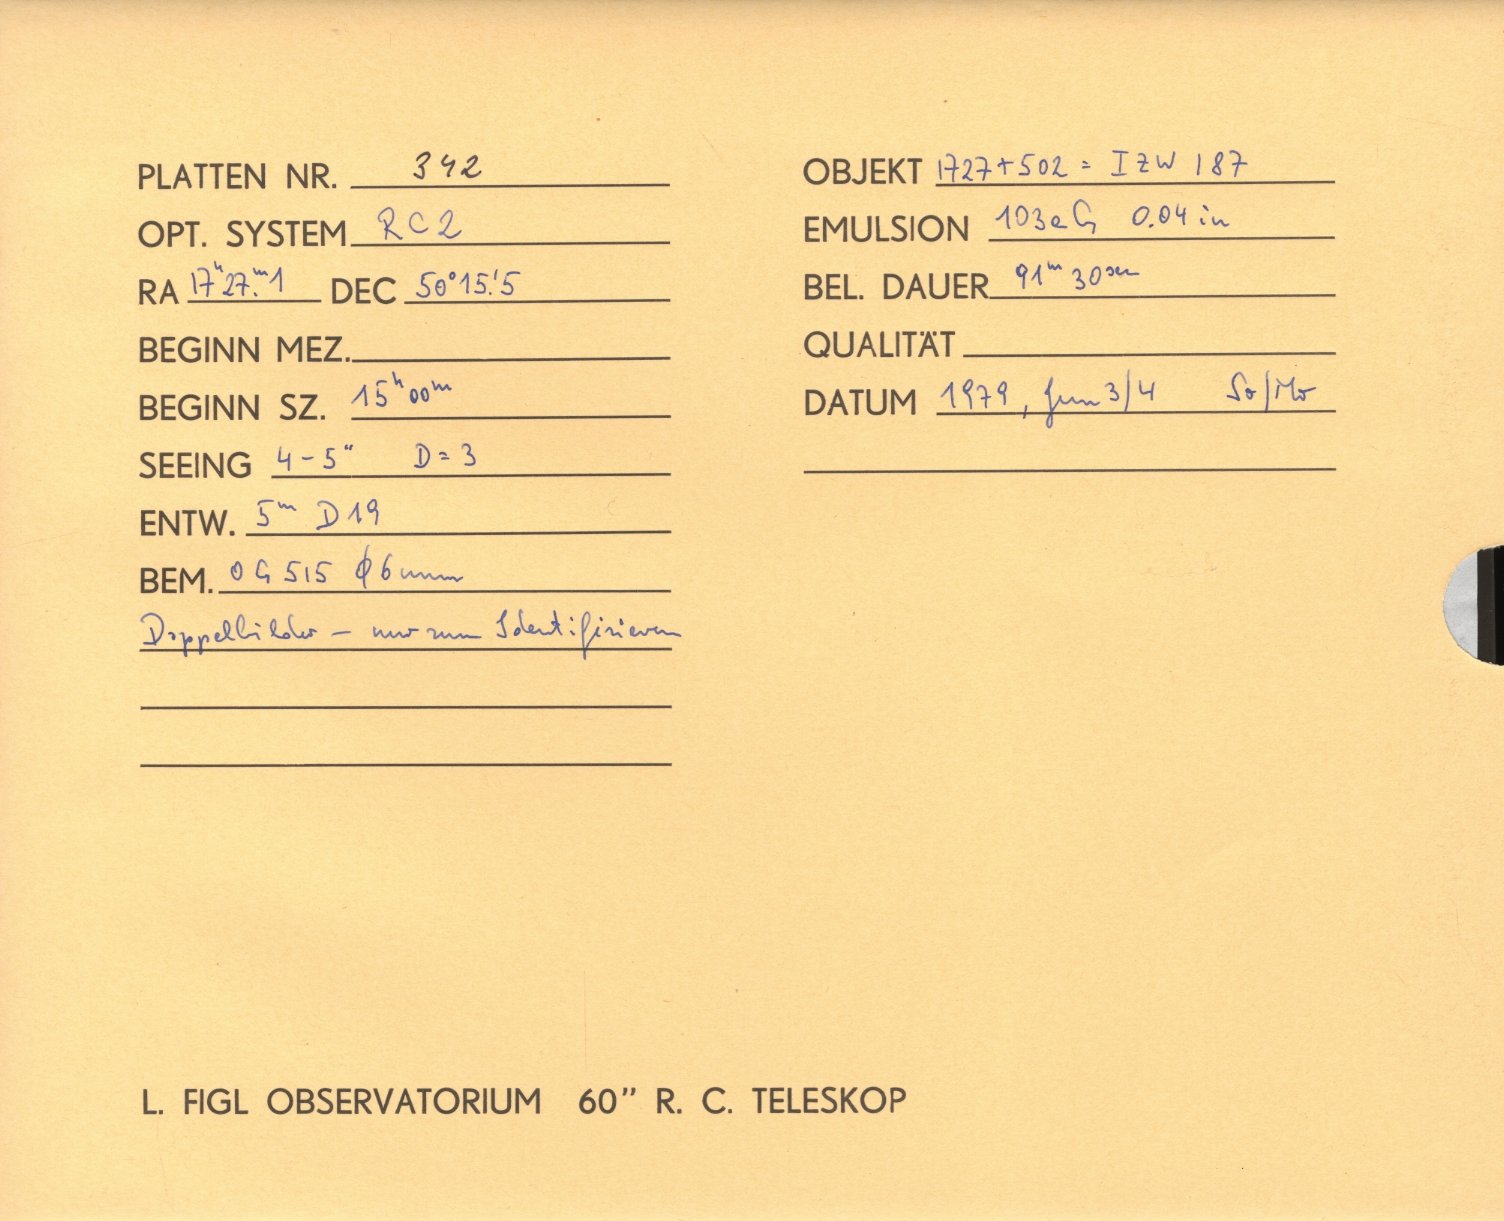 PLATTEN NR. 342
OPT. SYSTEM RC2
RA 17ʰ27ᵐ.1 DEC 50°15.'5
BEGINN MEZ.
BEGINN SZ. 15ʰ00ᵐ
SEEING 4-5" D=3
ENTW. 5ᵐ D19
BEM. OG515 ϕ6mm
Doppelbilder – nur zum Identifizieren
OBJEKT 1727+502 = IZW 187
EMULSION 103aG 0.04 in
BEL. DAUER 91ᵐ 30sec
QUALITÄT
DATUM 1979, Jun 3/4 So/Mo
L. FIGL OBSERVATORIUM 60" R. C. TELESKOP